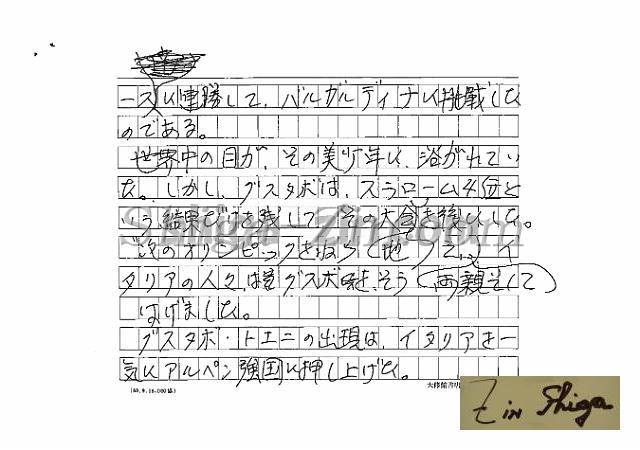 ースに連勝して、バルガルディナに挑戦した
のである。
世界中の目が、その美少年に、浴がれてい
た。しかし、グスタボは、スラローム4位と
いう結果だけを残して、その大会を後にした。
次のオリンピックを狙う 地 イ
タリアの人々は グスタボ を、そう 両親そして
はげました。
グスタボ・トエニの出現は、イタリアを一
気にアルペン強国に押し上げた。
大修館書
Shiga-Zin.com
Z in Shiga